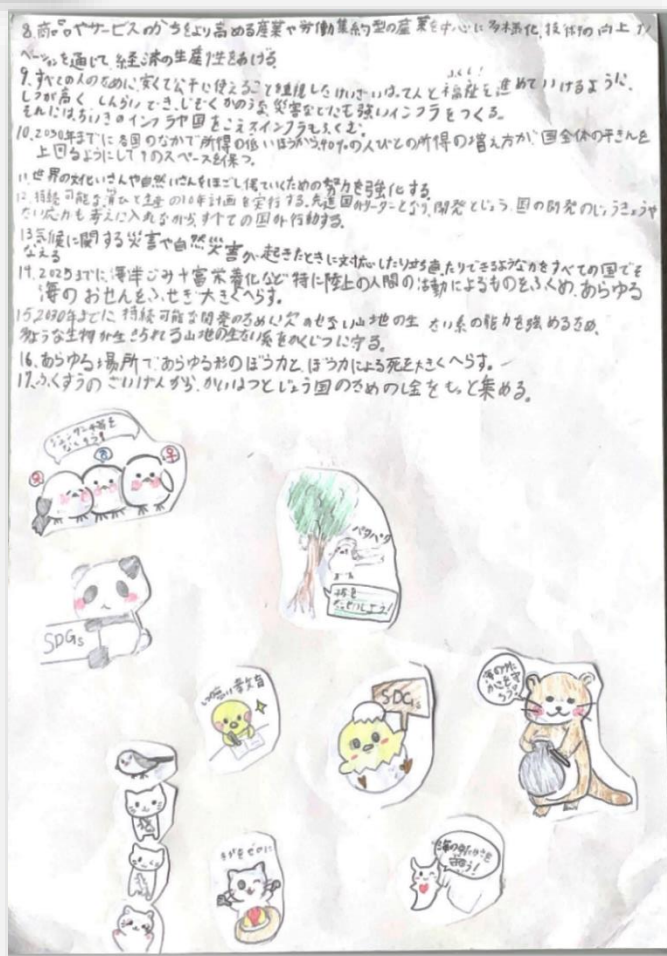 8.商品やサービスのかちをより高める産業や労働集約型の産業を中心に多様化、技術の向上、イノ
ベーションを通じて、経済の生産性をあげる。
9.すべての人のために、安くて公平に使えることを重視したけいざいはってんと福祉を進めていけるように、
しつが高く、しんらいでき、じぞくかのうな、災害などにも強いインフラをつくる。
それには、ちいきのインフラや国をこえたインフラもふくむ。
10.2030年までに各国のなかで所得の低いほうから40%の人びとの所得の増え方が、国全体の平きんを
上回るようにしてそのペースを保つ。
11.世界の文化いさんや自然いさんをほごし保っていくための努力を強化する。
12.持続可能な消ひと生産の10年計画を実行する。先進国がリーダーとなり、開発とじょう国の開発のじょうきょうや
たい応力も考えに入れながら、すべての国が行動する。
13.気候に関する災害や自然災害が起きたときに対応したり立ち直ったりできるような力をすべての国でも
なえる
14.2025までに、海洋ごみや富栄養化など、特に陸上の人間の活動によるものをふくめ、あらゆる
海のおせんをふせぎ大きくへらす。
15.2030年までに、持続可能な開発のために欠かせない山地の生たい系の能力を強めるため、
多様な生物が生きられる山地の生たい系をかくじつに守る。
16.あらゆる場所で、あらゆる形のぼう力と、ぼう力による死を大きくへらす。
17.ふくすうのざいげんから、かいはつとじょう国のためのし金をもっと集める。
ジェンダー不平等を
なくそう!
パタパタ
SDGs
しつの高い教育
SDGs
海の中の